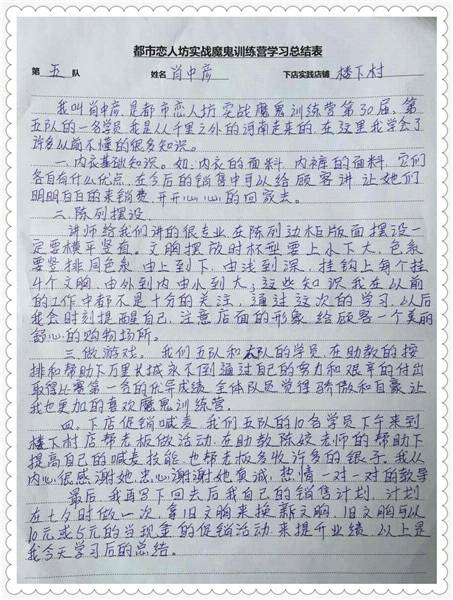 都市恋人坊实战魔鬼训练营学习总结表
第 五 队 姓名 肖中彦 下店实践店铺 楼下村
我叫肖中彦,是都市恋人坊实战魔鬼训练营第30届,第
五队的一名学员,我是从千里之外的河南走来的,在这里我学会了
许多从前不懂的很多知识。
一.内衣基础知识。如:内衣的面料,内裤的面料,它们
各自有什么优点,在今后的销售中可以给顾客讲,让她们
明明白白的来销费,开开心心的回家去。
二.陈列摆设.
讲师给我们讲的很专业,在陈列边柜版面摆设一
定要横平竖直。文胸摆放时杯型要上小下大,色系
要竖排同色系,由上到下,由浅到深,挂钩上每个挂
4个文胸,由外到内由小到大,这些知识我在以前
的工作中都不是十分的关注,通过这次的学习,以后
我会时刻提醒自己,注意店面的形象,给顾客一个美丽
舒心的购物场所。
三.做游戏。我们五队和六队的学员,在助教的按
排和帮助下万里长城永不倒通过自己的努力和艰辛的付出
取得比赛第一名的优异成绩,全体队员觉得骄傲和自豪,让
我也更加的喜欢魔鬼训练营.
四.下店促销喊麦,我们五队的10名学员下午来到
楼下村店帮老板做活动,在助教陈姣老师的帮助下
提高自己的喊麦技能,也帮老板多收许多的银子。我从
内心很感谢她,衷心谢谢她真诚,热情一对一对的教导
最后,我再写下回去后我自己的销售计划,计划
在七夕时做一次,拿旧文胸来换新文胸,旧文胸可以
10元或5元的当现金的促销活动,来提升业绩,以上是
我今天学习后的总结。